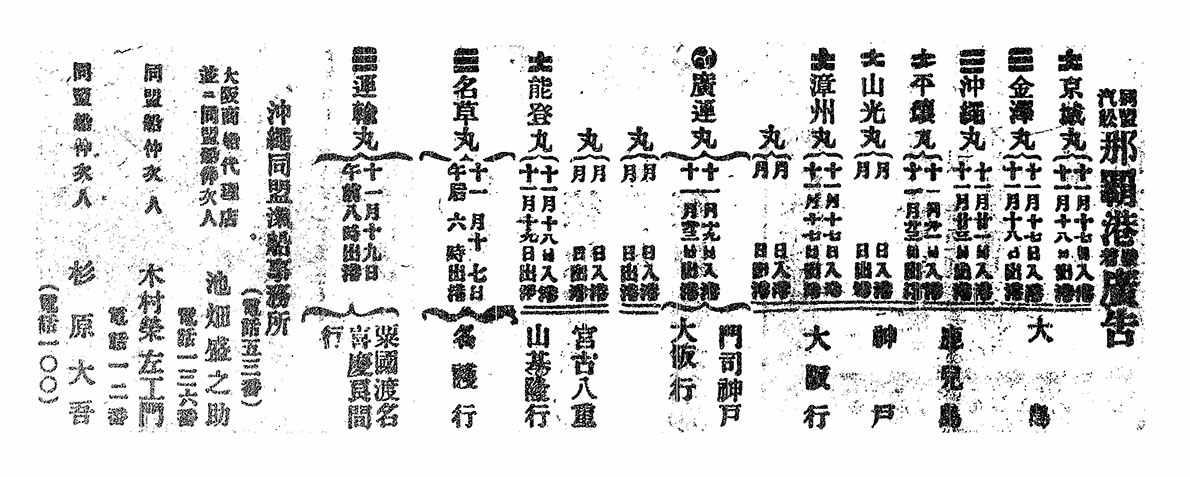 同盟汽舩那覇港廣告
京城丸 十一月十七日入港 十一月十八日出港
金澤丸 十一月十七日入港 十一月十八日出港
沖繩丸 十一月廿一日入港 十一月廿三日出港
平壤丸 十一月廿一日入港 十一月廿三日出港
山光丸 月 日入港 月 日出港
漳州丸 十一月十七日入港 十一月十七日出港
丸 月 日入港 月 日出港
大島
鹿兒島
神戸
大阪行
廣運丸 十一月十九日入港 十一月廿三日出港
門司神戸
大阪行
丸 月 日入港 月 日出港
丸 月 日入港 月 日出港
能登丸 十一月十八日入港 十一月十九日出港
宮古八重
山基隆行
名草丸 十一月十七日
午后六時出港
名護行
運輸丸 十一月十九日
午前八時出港
粟國渡名
喜慶良間
行
沖繩同盟滊船事務所
(電話五三番)
大阪商船代理店
並ニ同盟船仲次人
池畑盛之助
電話一三六番
同盟船仲次人 木村榮左工門
電話一二番
同盟船仲次人 杉原大吾
(電話一〇〇)